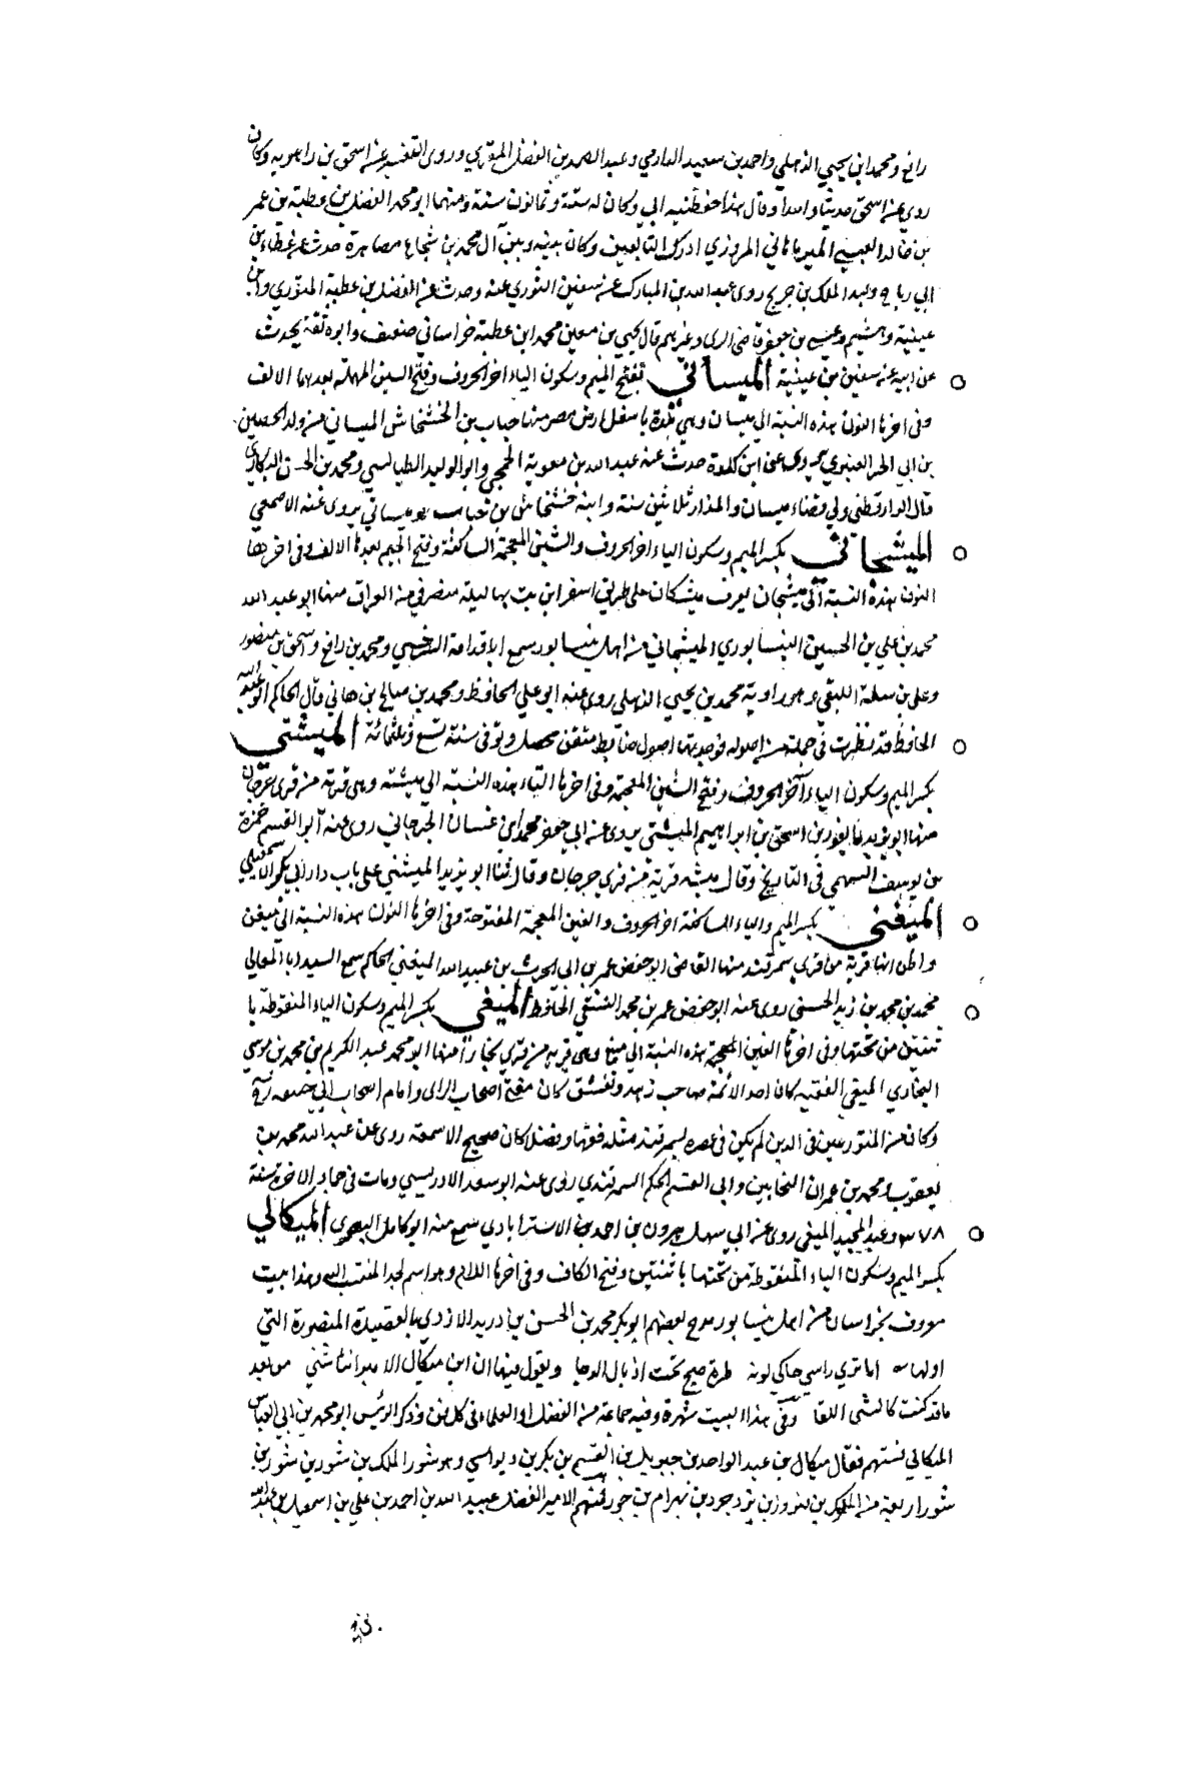 رافع ومحمد ابن يحيي الذهلي واحمد بن سعيد الدارمي وعبد الصمد بن الفضل المقري وروى التفسير عن اسحق بن راهويه وكان
روى عن اسحق حديثا واحدا وقال هذا حفظنيه ابي وكان له ستة وثمانون سنة ومنها ابو محمد الفضل بن عطية بن عمر
بن خالد العبسي الميرماهاني المروزي ادرك التابعين وكان بينه وبين آل محمد بن شجاع مصاهرة حدث عن عطاء بن
ابي رباح وعبد الملك بن جريج روى عبد الله بن المبارك عن سفين الثوري عنه وحدث عن الفضل بن عطية المتوري وابن
عيينة وهشيم وعيسى بن جعفر قاضى الرى وغيرهم قال يحيي بن معين محمد ابن عطية خراساني ضعيف وابوه ثقة يحدث
عن ابيه عنه سفين بن عيينة الميساني بفتح الميم وسكون الياء اخر الحروف وفتح السين المهملة بعدها الالف
وفى اخرها النون هذه النسبة الي ميسان وهي بلدة باسفل ارض مصر منها حباب بن الخشخاش الميساني من ولد الحصين
بن ابي الحر العنبري يروى عن ابن كلدة حدث عنه عبد الله بن معوية الجمحي وابو الوليد الطيالسي ومحمد بن الحسن
قال الدارقطني ولي قضاء ميسان والمذار ثلاثين سنة وابنه خشخاش بن حباب ميساني يروى عنه الاصمعي
الميشجاني بكسر الميم وسكون الياء اخر الحروف والشين المعجمة الساكنة وفتح الجيم بعدها الالف وفى اخرها
النون هذه النسبة الى ميشجان يعرف كان على طريق اسفراين بت بها ليلة منصرفي من العراق منها ابو عبد الله
محمد بن علي بن الحسين النيسابوري الميشجاني من اهل نيسابور سمع ابا قدامة السرخسي ومحمد بن رافع واسحق بن منصور
وعلى بن سلمة اللبقي وهو راوية محمد بن يحيي الذهلي روى عنه ابو علي الحافظ ومحمد بن صالح بن هاني قال الحاكم ابو عبد الله
الحافظ قد نظرت في جملة من اصوله فوجدتها اصول ضابط متقن محصل وتوفى سنة تسع وثلثمائة الميشتي
بكسر الميم وسكون الياء آخر الحروف وفتح الشين المعجمة وفى اخرها التاء هذه النسبة الى ميشته وهى قرية من قرى جرجان
منها ابو يزيد بن اسحق بن ابراهيم الميشتي يروى عن ابي جعفر محمد بن غسان الجرجاني روى عنه ابو القسم حمزة
بن يوسف السهمي فى التاريخ وقال ميشه قرية من قرى جرجان وقال ثنا ابو يزيد الميشتي على باب دار ابي بكر الاسمعيلي
الميغني بكسر الميم والياء الساكنة اخر الحروف والغين المعجمة المفتوحة وفى اخرها النون هذه النسبة الى ميغن
واظن انها قرية من قرى سمرقند منها القاضى ابو حفض عمر بن ابى الحرث بن عبيد الله الميغني الحاكم سمع السيد ابا المعالي
محمد بن محمد بن زيد الحسيني روى عنه ابو حفض عمر بن محمد النسفي الحافظ الميغي بكسر الميم وسكون الياء المنقوطة با
ثنتين من تحتها وفى اخرها الغين المعجمة هذه النسبة الي ميغ وهى قرية من قرى بخارا منها ابو محمد عبد الكريم بن محمد بن موسي
البخاري الميغى الفقيه كان احد الائمة صاحب زهد وتقشف كان مفتى اصحاب الراى وامام اصحاب ابي حنيفه رح
وكان من المتورعين فى الدين لم يكن فى عصره بسمرقند مثله فقها وفضلا كان صحيح الاسمعة روى عن عبد الله محمد بن
يعقوب ومحمد بن عمران البخاريين وابى القسم الحكم السمرقندي روى عنه ابو سعد الادريسي ومات فى جمادى الاخرة سنة
٣٧٨ وعبد المجيد الميغى روى عن ابي سهل هرون بن احمد بن الاسترابادي سمع منه ابو كامل البصري الميكالي
بكسر الميم وسكون الياء المنقوطة من تحتها باثنتين وفتح الكاف وفى اخرها اللام وهو اسم لجد المنتسب اليه وهذا بيت
معروف بخراسان من اهل نيسابور مدح بعضهم ابو بكر محمد بن الحسن بن دريد الازدي بالقصيدة المقصورة التي
اولها سه اما تري راسي حاكى لونه طرة صبح تحت اذيال الدجا ويقول فيها ان ابن ميكال الامير انتاشني من بعد
ما قد كنت كالشى اللقا وفي هذا البيت شهرة وفيه جماعة من الفضلا والعلماء فى كل فن وذكر الرئيس ابو محمد بن ابي العباس
الميكالي نسبتهم فقال ميكال بن عبد الواحد بن جبريل بن القسم بن بكر بن ديواسي وهو شور الملك بن شور بن شور بن
شور اربعة من الملوك بن فيروز بن يزدجرد بن بهرام بن جور فمنهم الامير الفضل عبيد الله بن احمد بن علي بن اسمعيل بن عبد الله